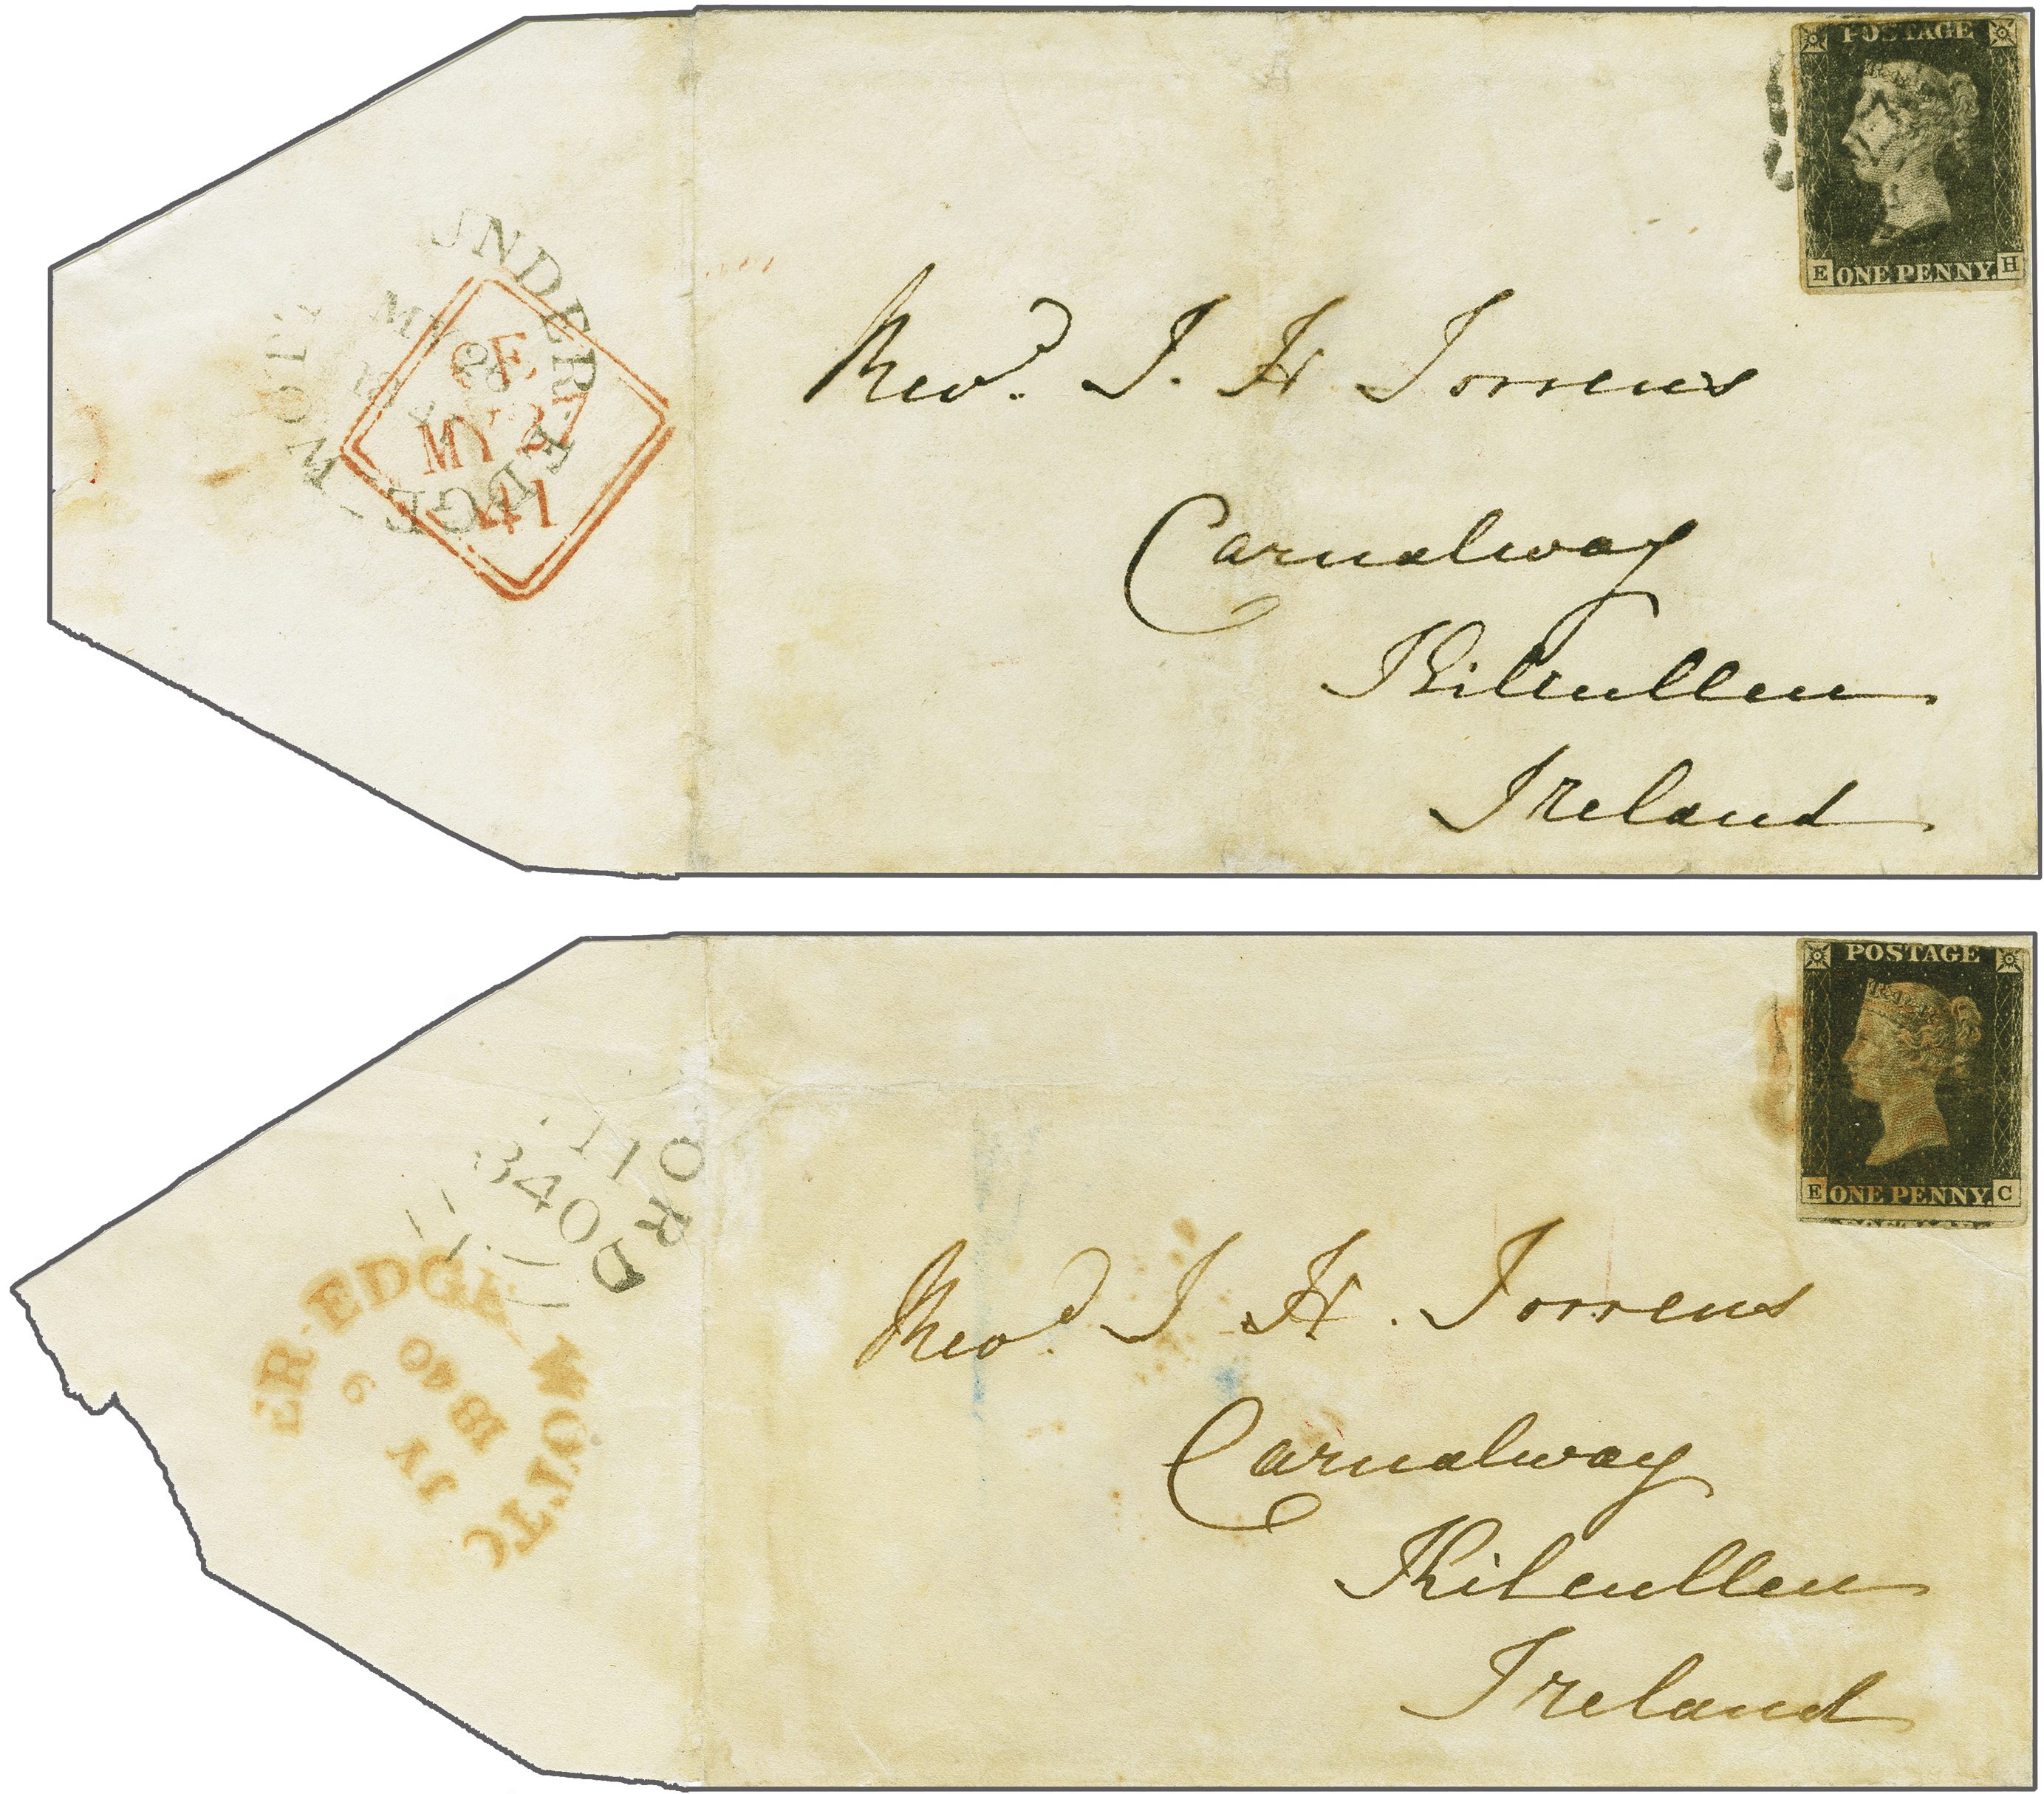 POSTAGE
E ONE PENNY. H
UNDER-EDGE-WOT
MY
18
CE
MY 27
41
Revd. J. H Torrens
Carnalway
Kilcullen
Ireland
POSTAGE
E ONE PENNY. C
ORD
840
ER-EDGE-WOTT
JY 9
1840
Revd. J H. Torrens
Carnalway
Kilcullen
Ireland